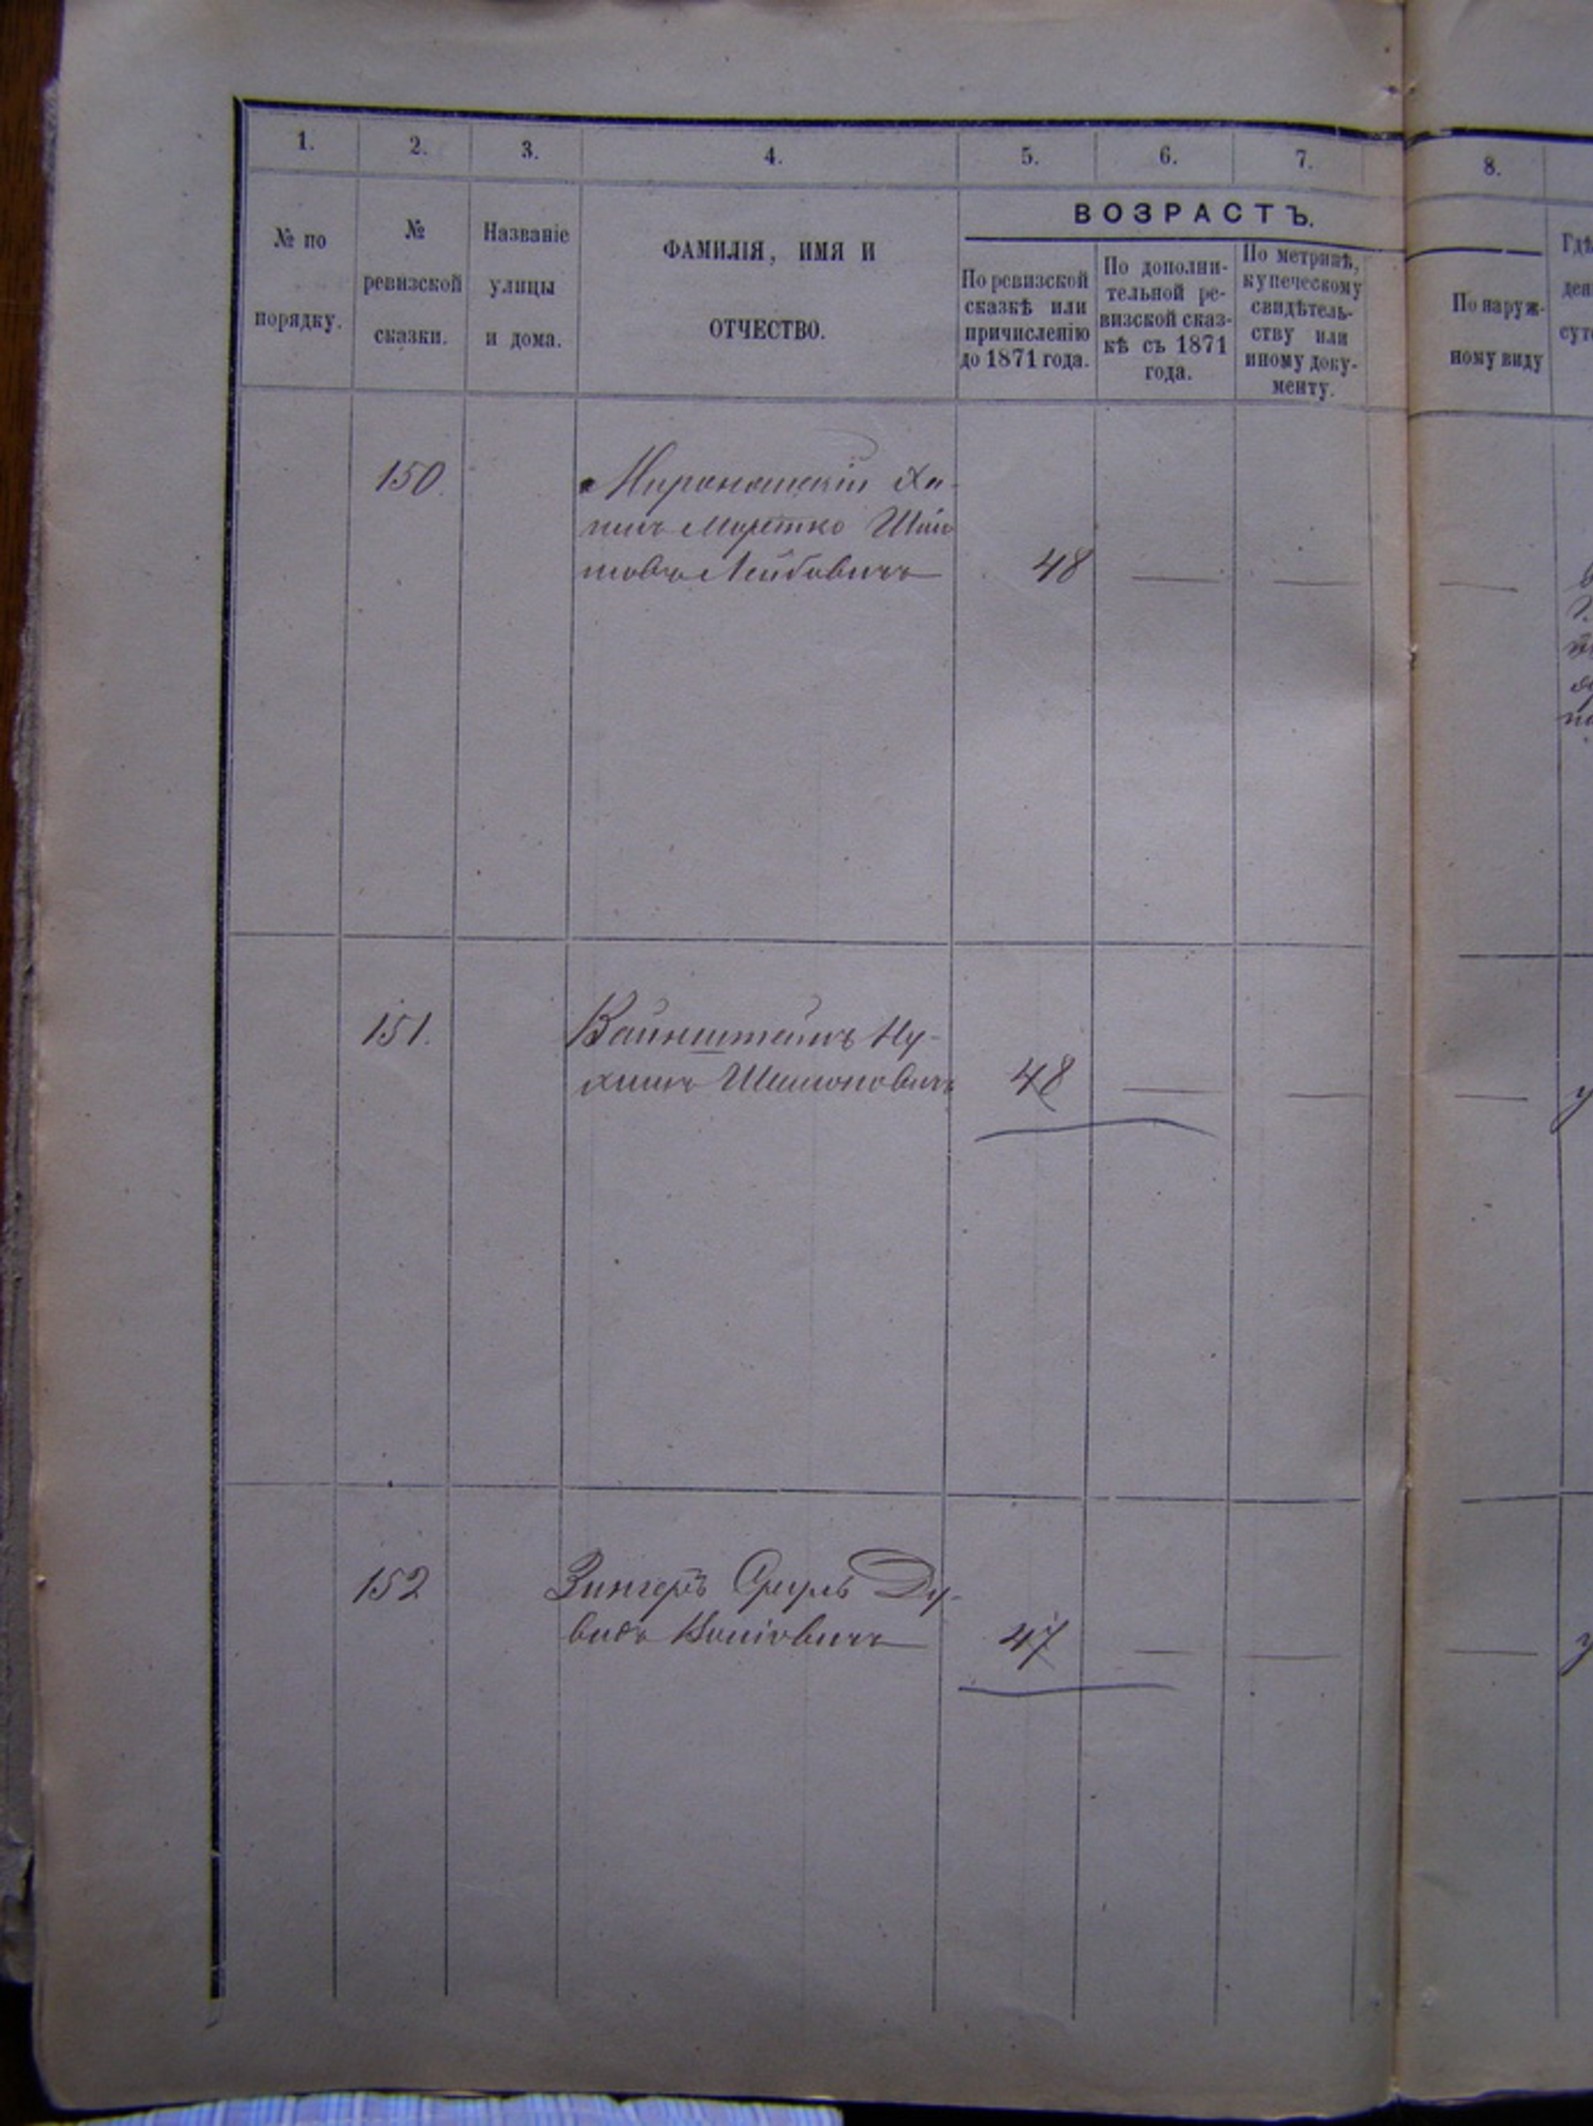 1. 2. 3. 4. 5. 6. 7. 8.
№ по
порядку.
№
ревизской
сказки.
Названіе
улицы
и дома.
ФАМИЛІЯ, ИМЯ И
ОТЧЕСТВО.
ВОЗРАСТЪ.
По ревизской
сказкѣ или
причисленію
до 1871 года.
По дополни-
тельной ре-
визской сказ-
кѣ съ 1871
года.
По метрикѣ,
купеческому
свидѣтель-
ству или
иному доку-
менту.
По наруж-
ному виду
150.
Лейбовичъ 48 — — —
151. Вайнштейнъ Ну-
химъ Шимоновичъ 48 — — —
152 Зингеръ Сруль Ду-
видъ 47 — — —